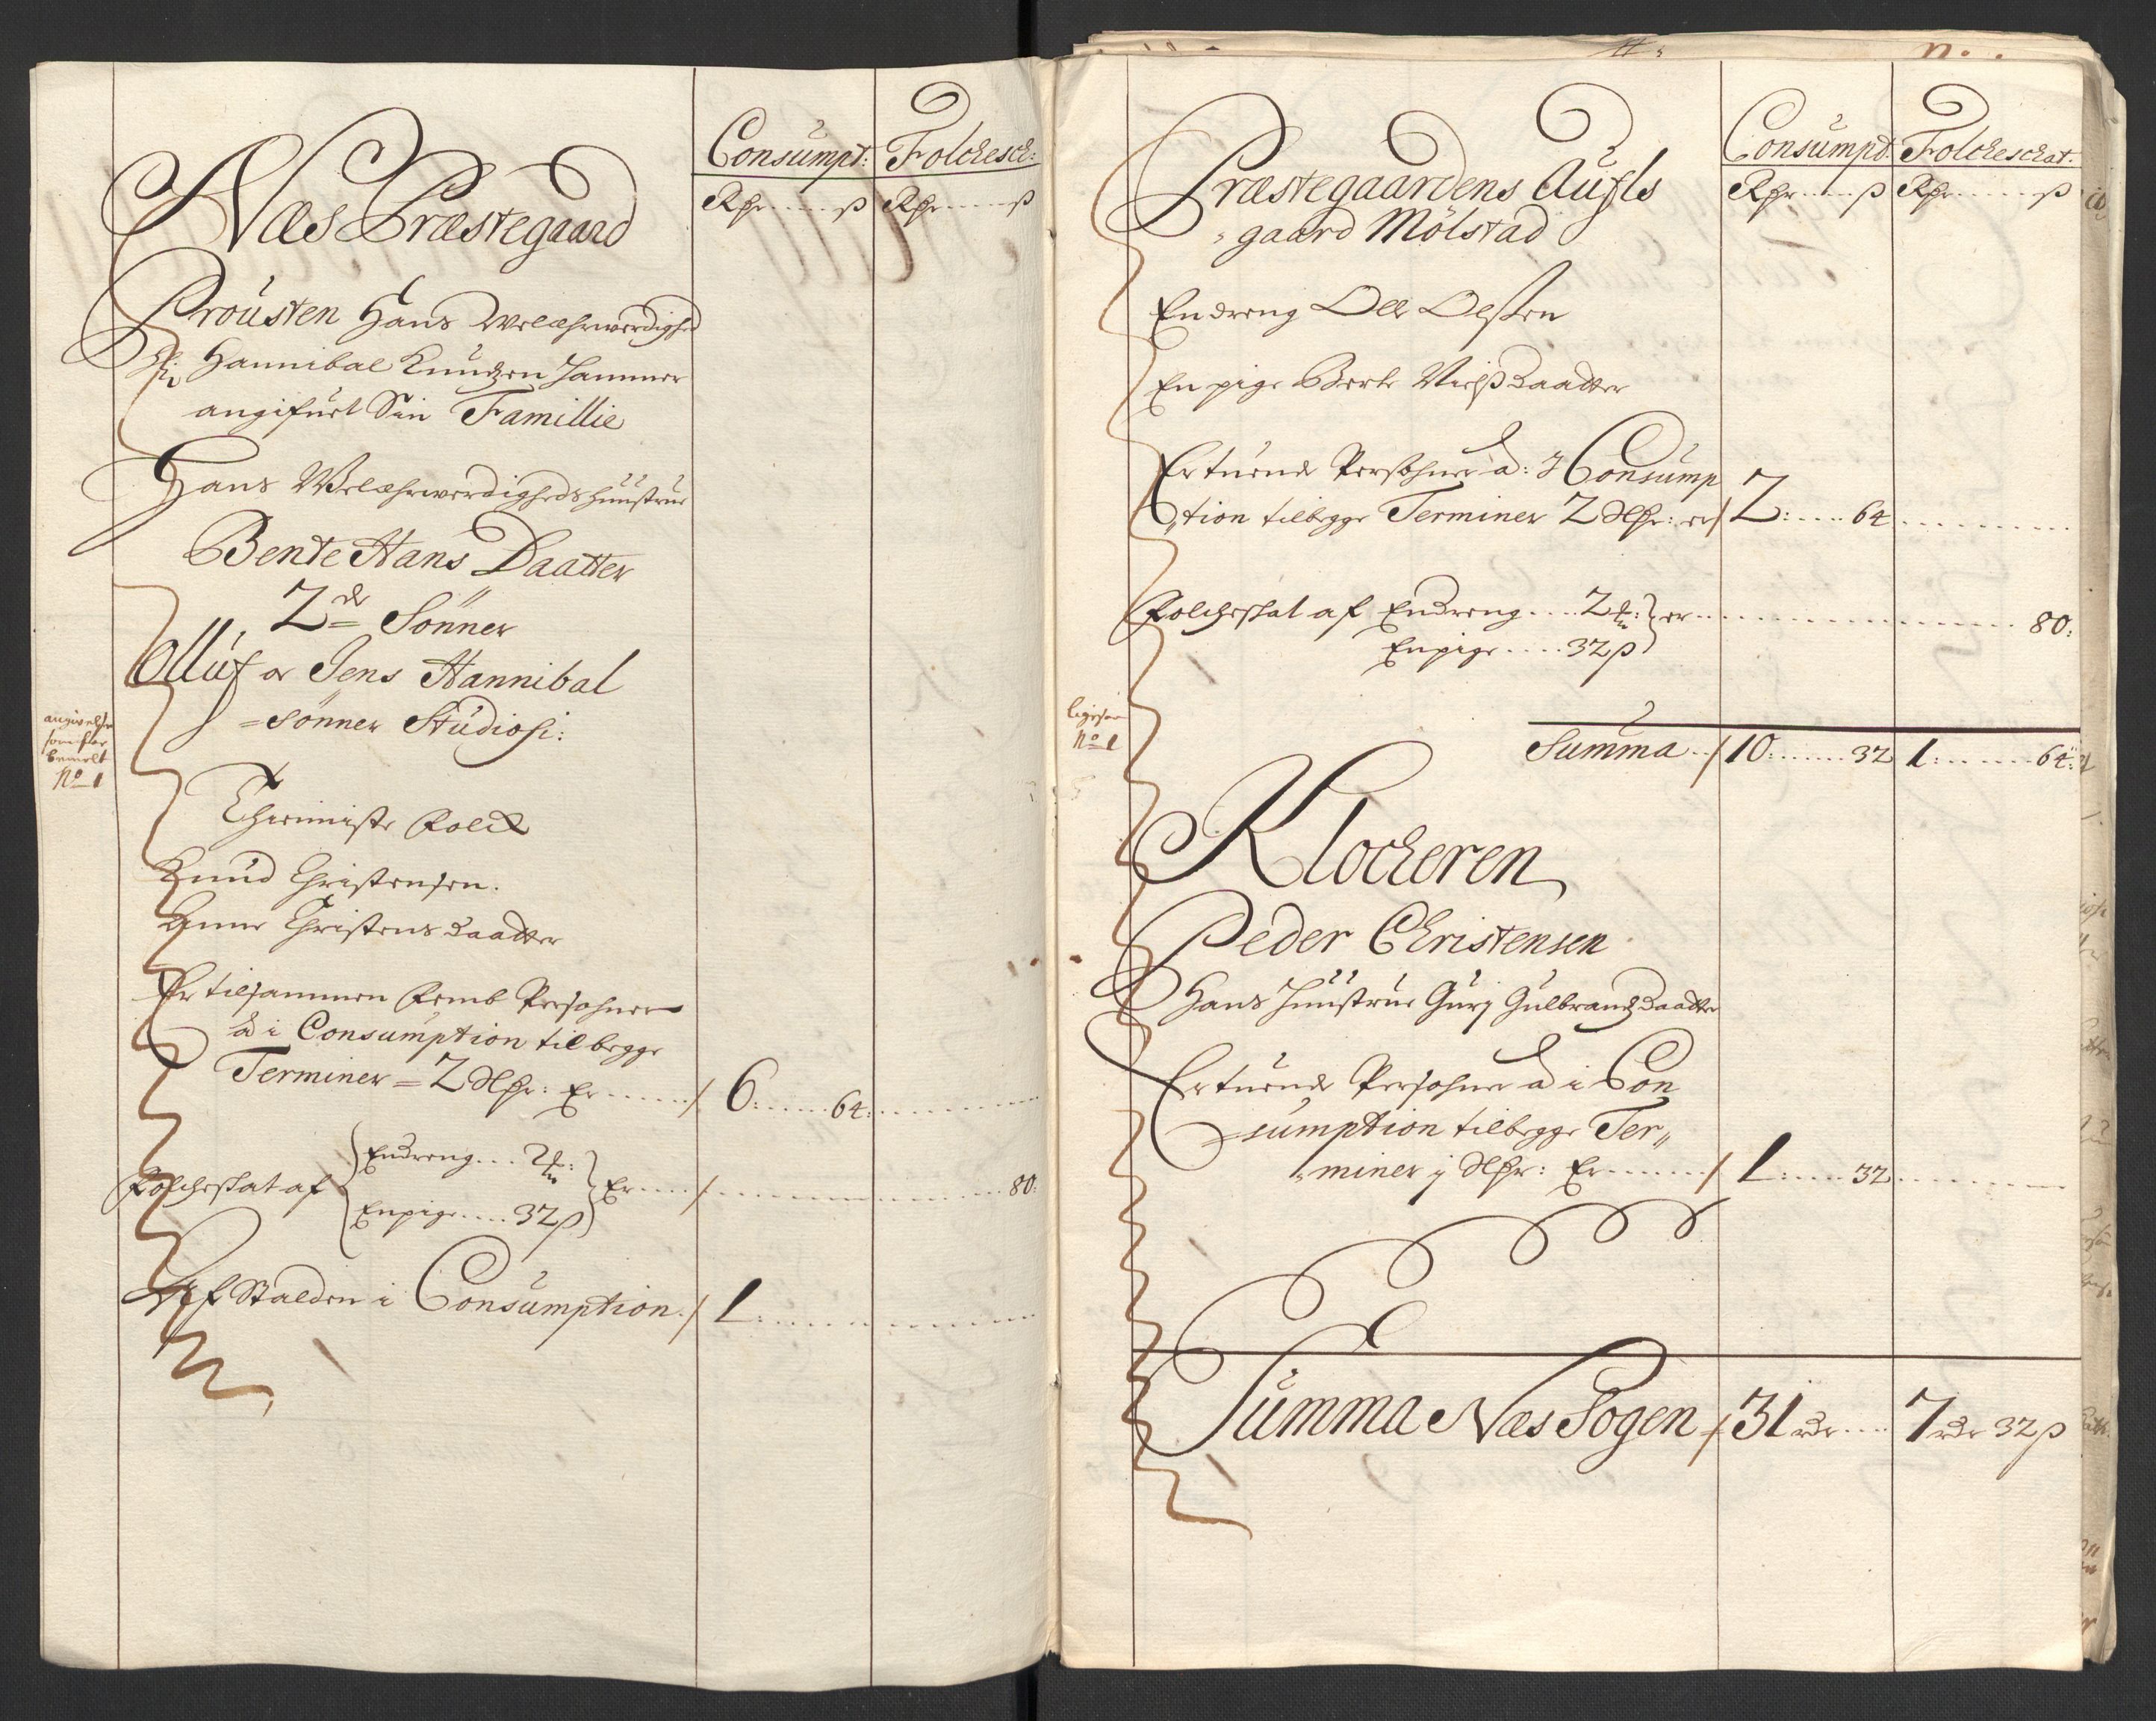 Consumpt: Folckesch:
Rdr ß Rdr ß
Næs Præstegaard
Prousten Hans Welærværdighed
Hr: Hannibal Knudzen Hammer
angifuet Sin Famillie
Hans Welærværdigheds Huustrue
Bente Hans Daatter
2de Sönner
Olluf og Jens Hannibal
=sönner Studiosi:
angivelse
bemelt
No 1
Thienniste Folck
Knud Christensen.
Anne Christens daatter
Er tilsammen Femb Persohner
à i Consumption til begge
Terminer = 2 Rdr: Er / 6: 64:
Folcheskat af Endreng 2 Er / 80:
En pige 32 ß
Af Stalden i Consumption / 1:
Consumpt: Folckeschat.
Rdr ß Rdr ß
Præstegaardens Aufls
=gaard Mölstad
En dreng Olle Olssen
En pige Berte Nielß daatter
Er tuende Persohner à: i Consump
tion til begge Terminer 2 Rdr: er / 2: 64
Folcheskat af En dreng 2 er 80:
En pige 32 ß
No 1
Summa / 10: 32 1: 64:
Klockeren
Peder Christensen
Hans Huustrue Guri Gulbrandz daatter
Er tuende Persohner à i Con
=sumption til begge Ter„
„miner j Rdr: Er / 1: 32
Summa Næs Sogen / 31 rdr 7 rdr 32 ß